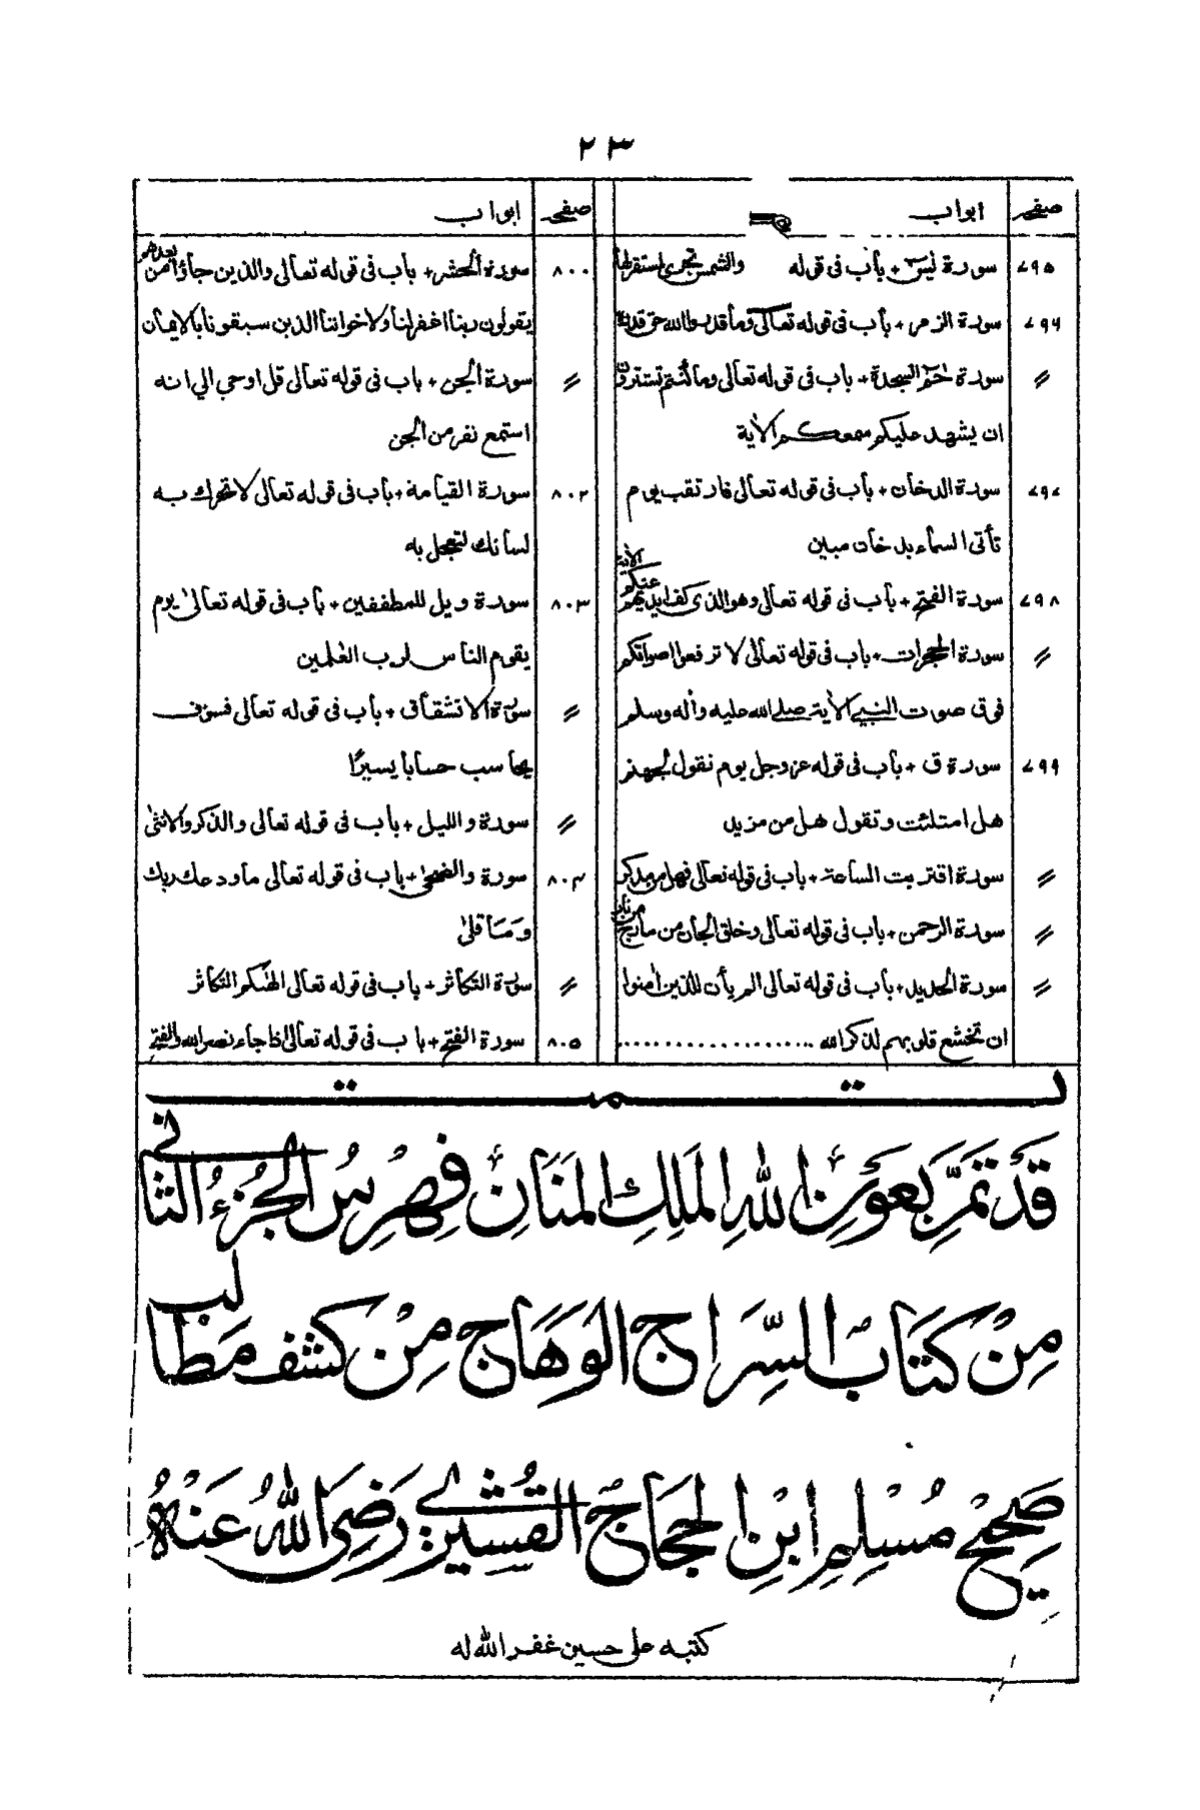 ٢٣
صفحه ابواب
٧٩٥ سورة يٰسٓ + باب فى قوله والشمس تجرى لمستقر لها
٧٩٦ سورة الزمر + باب فى قوله تعالى وما قدروا الله حق قدره
〃 سورة حٰمٓ السجدة + باب فى قوله تعالى وما كنتم تستترون
ان يشهد عليكم سمعكم الاٰية
٧٩٧ سورة الدخان + باب فى قوله تعالى فارتقب يوم
تأتى السماء بدخان مبين
٧٩٨ سورة الفتح + باب فى قوله تعالى وهو الذى كف ايديهم عنكم الاٰية
〃 سورة الحجرات + باب فى قوله تعالى لا ترفعوا اصواتكم
فوق صوت النبي الاٰية صلى الله عليه واٰله وسلم
٧٩٩ سورة ق + باب فى قوله عز وجل يوم نقول لجهنم
هل امتلئت وتقول هل من مزيد
〃 سورة اقتربت الساعة + باب فى قوله تعالى فهل من مدكر
〃 سورة الرحمن + باب فى قوله تعالى وخلق الجان من مارج من نار
〃 سورة الحديد + باب فى قوله تعالى الم يأن للذين اٰمنوا
ان تخشع قلوبهم لذكر الله ..................
صفحه ابواب
٨٠٠ سورة الحشر + باب فى قوله تعالى والذين جاؤا من بعدهم
يقولون ربنا اغفر لنا ولاخواننا الذين سبقونا بالايمان
〃 سورة الجن + باب فى قوله تعالى قل اوحي الي انه
استمع نفر من الجن
٨٠٢ سورة القيامة + باب فى قوله تعالى لا تحرك به
لسانك لتعجل به
٨٠٣ سورة ويل للمطففين + باب فى قوله تعالىٰ يوم
يقوم الناس لرب العٰلمين
〃 سورة الانشقاق + باب فى قوله تعالى فسوف
يحاسب حسابا يسيرًا
〃 سورة والليل + باب فى قوله تعالى والذكر والانثىٰ
٨٠٤ سورة والضحىٰ + باب فى قوله تعالى ما ودعك ربك
وَمَا قلىٰ
〃 سورة التكاثر + باب فى قوله تعالى الهٰكم التكاثر
٨٠٥ سورة الفتح + باب فى قوله تعالى اذا جاء نصر الله والفتح
تمت
قَدْ تَمَّ بِعَوْنِ اللهِ المَلِكِ المَنَانِ فِهْرِسُ الجُزْءُ الثَانى
مِنْ كتَابِ السِّرَاج الوَهَاج مِنْ كشف مَطالب
صَحِيْح مُسْلِم ابْنِ الحجَاجْ القُشَيْرى رَضِىَ اللهُ عَنْهُ
كتبه على حسين غفر الله له